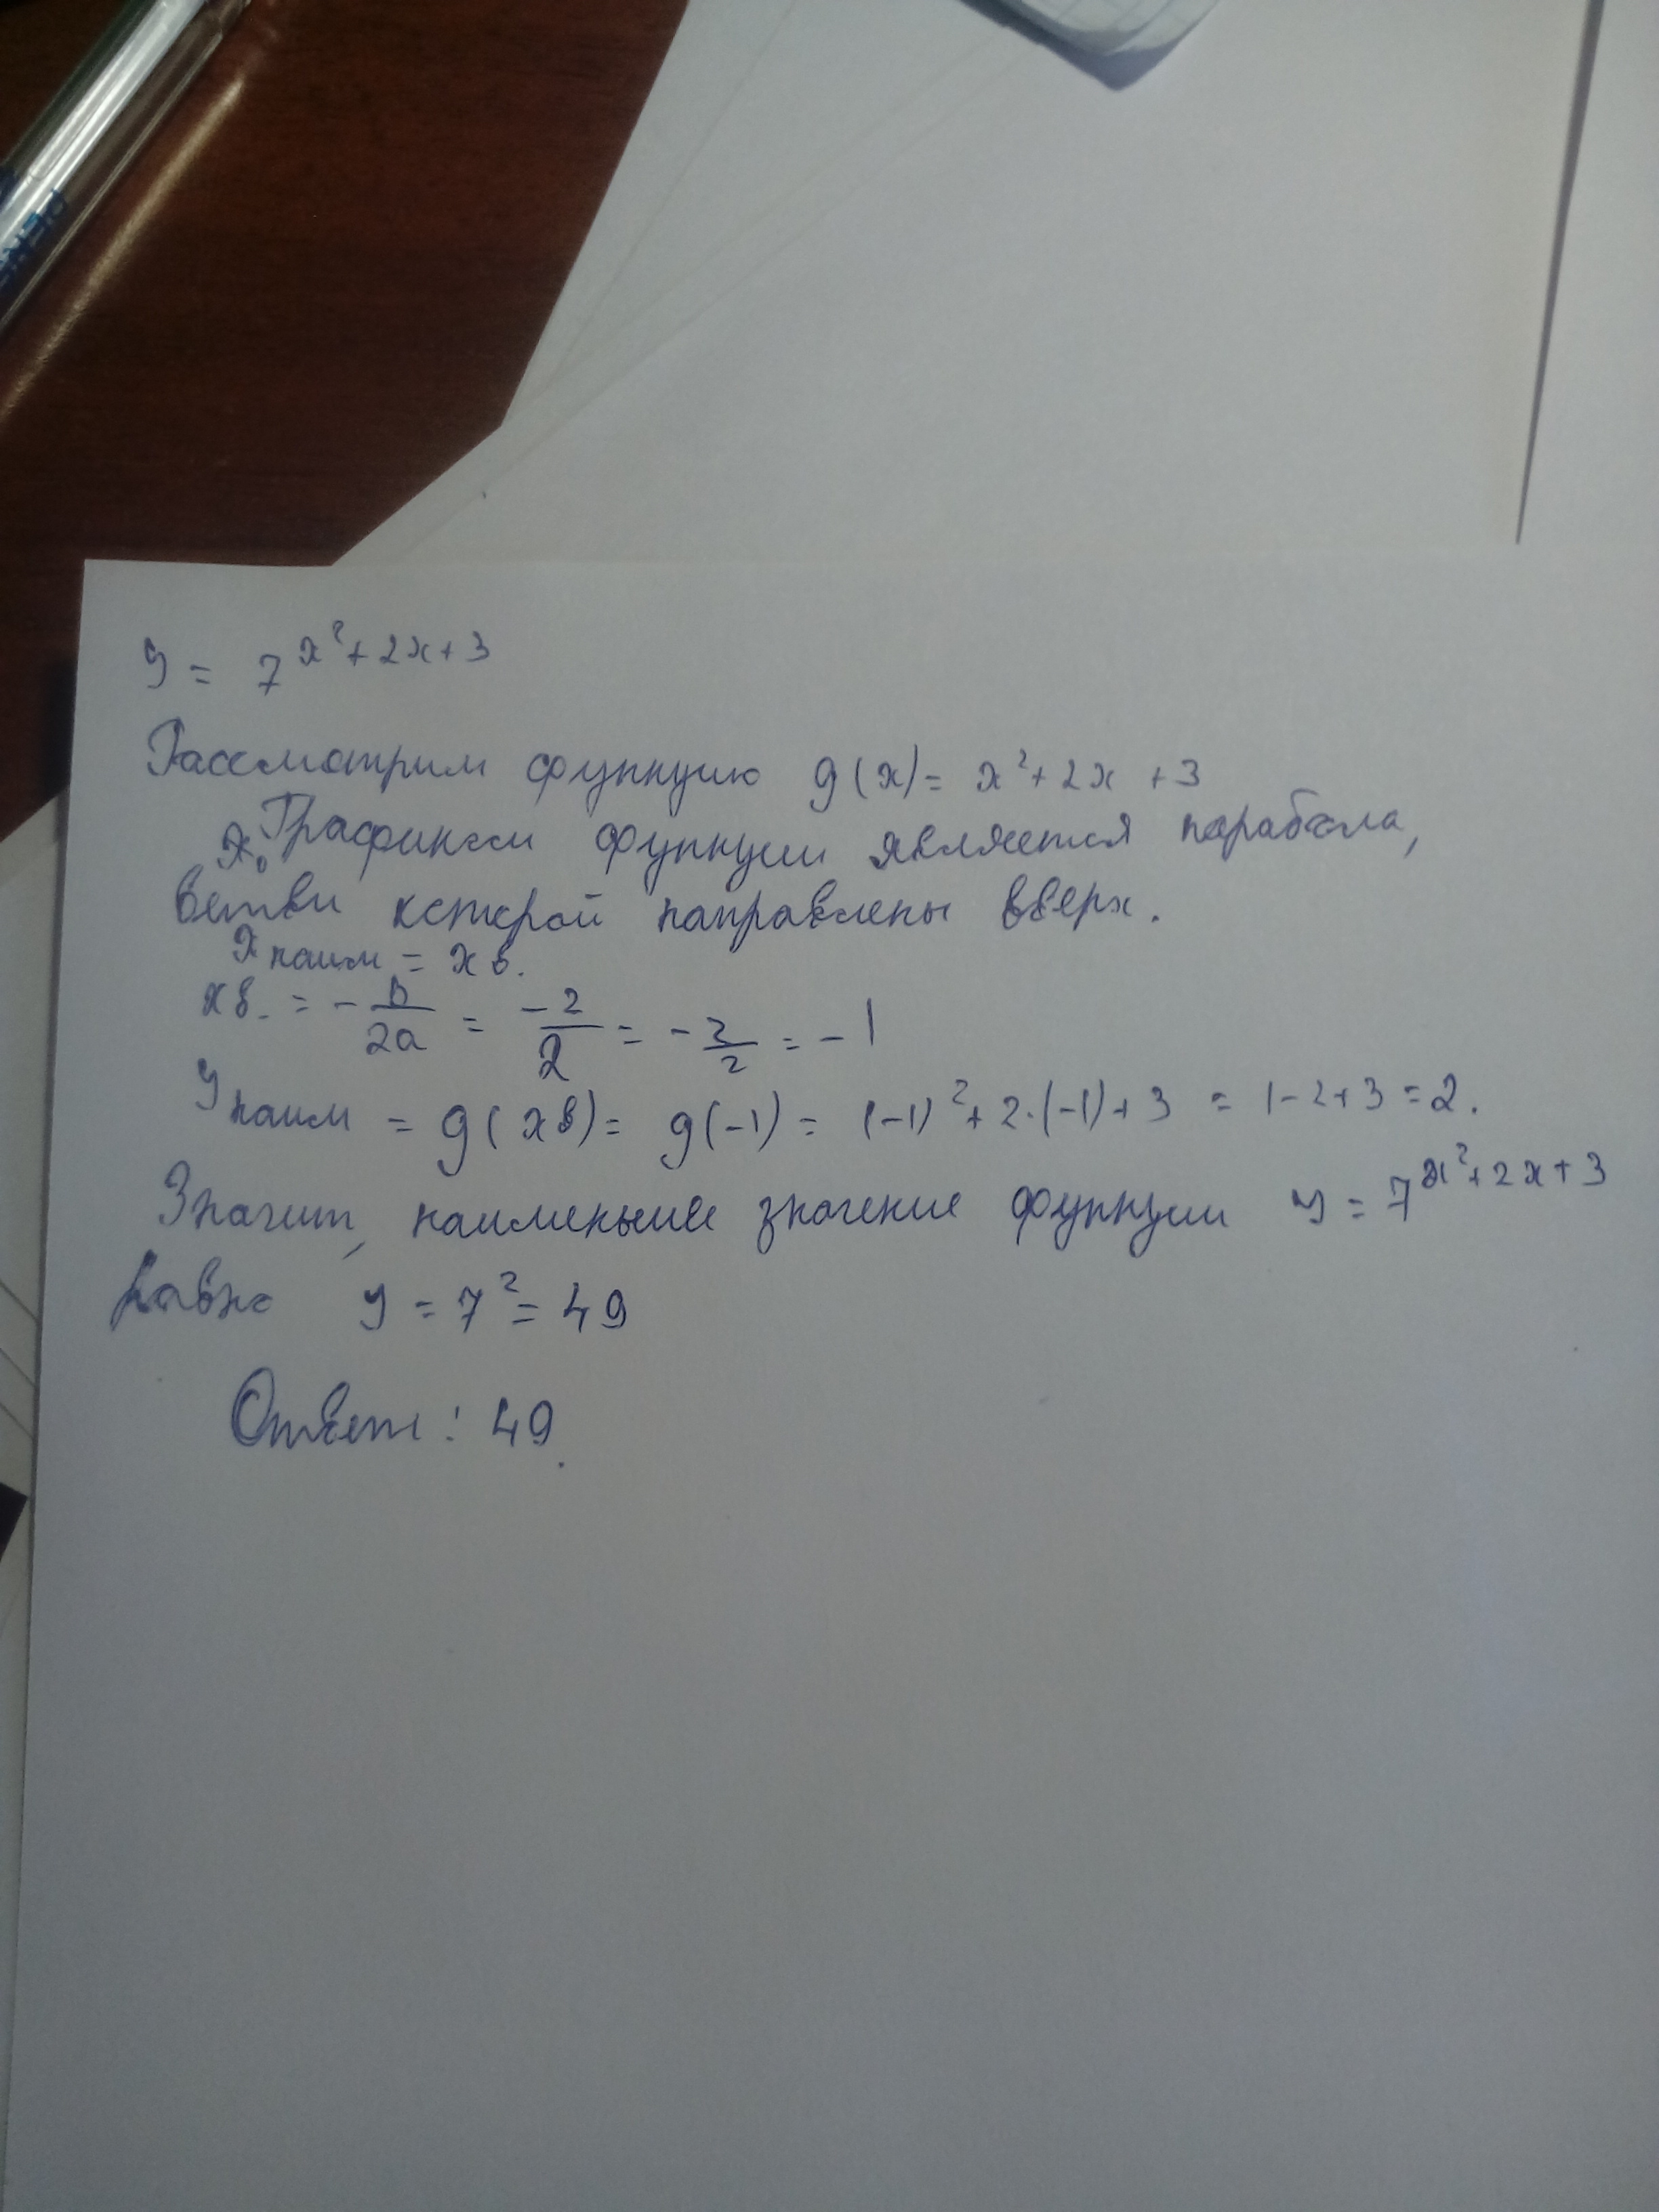 y = 7^{x²+2x+3}
Рассмотрим функцию g(x) = x²+2x+3
x₀ Графиком функции является парабола,
ветви которой направлены вверх.
x наим = x в.
x в. = - b/2a = -2/2 = - 2/2 = -1
y наим = g(xв) = g(-1) = (-1)²+2·(-1)+3 = 1-2+3=2.
Значит, наименьшее значение функции y = 7^{x²+2x+3}
равно y = 7² = 49
Ответ: 49.